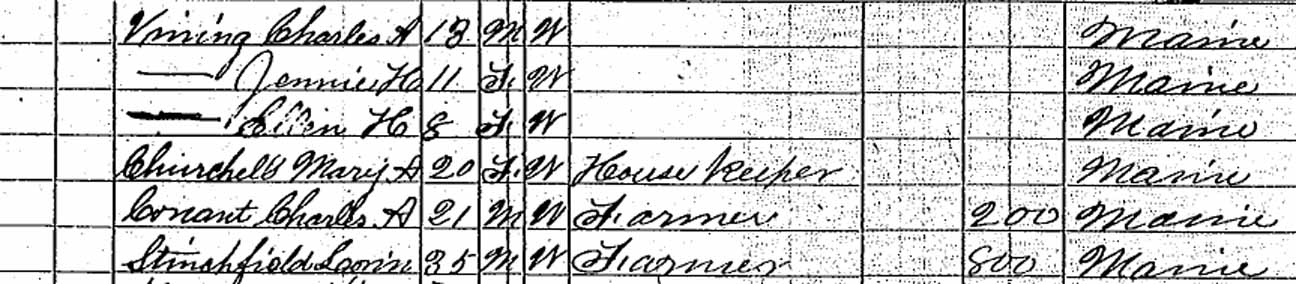 Vining Charles A 13 M W Maine
—— Jennie H 11 F. W Maine
—— Ellen H 8 F. W Maine
Churchell Mary A 20 F. W House Keeper Maine
Conant Charles A 21 M W Farmer 200 Maine
Stinchfield 35 M W Farmer 800 Maine